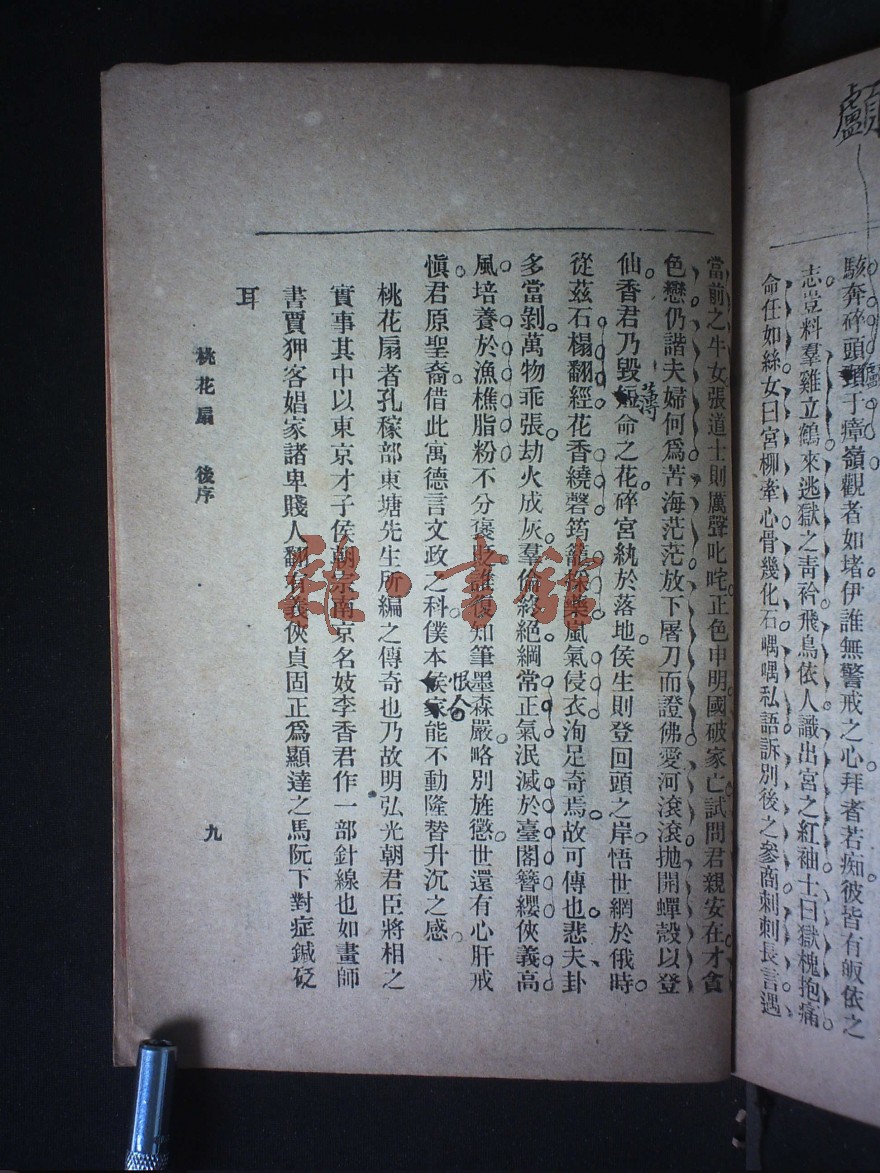 顱
駭奔碎頭頸于瘴嶺觀者如堵伊誰無警戒之心拜者若痴彼皆有皈依之
志豈料羣雞立鶴來逃獄之靑衿飛鳥依人識出宮之紅袖士曰獄槐抱痛
命任如絲女曰宮柳牽心骨幾化石喁喁私語訴別後之參商刺刺長言遇
當前之牛女張道士則厲聲叱咤正色申明國破家亡試問君親安在才貪
色戀仍諧夫婦何爲苦海茫茫放下屠刀而證佛愛河滾滾拋開蟬殼以登
仙香君乃毀短命之花碎宮紈於落地侯生則登回頭之岸悟世網於俄時
薄
從茲石榻翻經花香繞磬筠籠採藥嵐氣侵衣洵足奇焉故可傳也悲夫卦
多當剝萬物乖張劫火成灰羣倫終絕綱常正氣泯滅於臺閣簪纓俠義高
風培養於漁樵脂粉不分褒貶誰復知筆墨森嚴略別旌懲世還有心肝戒
愼君原聖裔借此寓德言文政之科僕本侯家能不動隆替升沉之感
恨人
桃花扇者孔稼部東塘先生所編之傳奇也乃故明弘光朝君臣將相之
實事其中以東京才子侯朝宗南京名妓李香君作一部針線也如畫師
書賈狎客娼家諸卑賤人翻有義俠貞固正爲顯達之馬阮下對症鍼砭
耳
桃花扇 後序
九